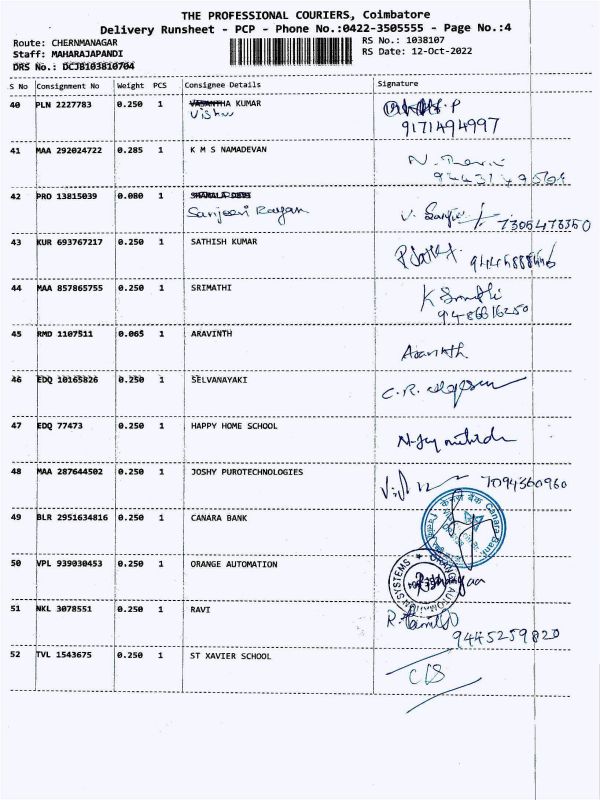 THE PROFESSIONAL COURIERS, Coimbatore
Delivery Runsheet - PCP - Phone No.:0422-3505555 - Page No.:4
Route: CHERNMANAGAR RS No.: 1038107
Staff: MAHARAJAPANDI RS Date: 12-Oct-2022
DRS No.: DCJB103810704
S No Consignment No Weight PCS Consignee Details Signature
40 PLN 2227783 0.250 1 VASANTHA KUMAR
Vishnu
9171494997
41 MAA 292024722 0.285 1 K M S NAMADEVAN
42 PRO 13815039 0.080 1
Sanjeevi Rayan 7305476350
43 KUR 693767217 0.250 1 SATHISH KUMAR
44 MAA 857865755 0.250 1 SRIMATHI
9486616250
45 RMD 1107511 0.065 1 ARAVINTH
Aravinth
46 EDQ 10165826 0.250 1 SELVANAYAKI
C.R.
47 EDQ 77473 0.250 1 HAPPY HOME SCHOOL
48 MAA 287644502 0.250 1 JOSHY PUROTECHNOLOGIES
7094360960
49 BLR 2951634816 0.250 1 CANARA BANK
केनरा बैंक Canara Bank
50 VPL 939030453 0.250 1 ORANGE AUTOMATION
ORANGE AUTOMATION SYSTEMS
51 NKL 3078551 0.250 1 RAVI
9445259820
52 TVL 1543675 0.250 1 ST XAVIER SCHOOL